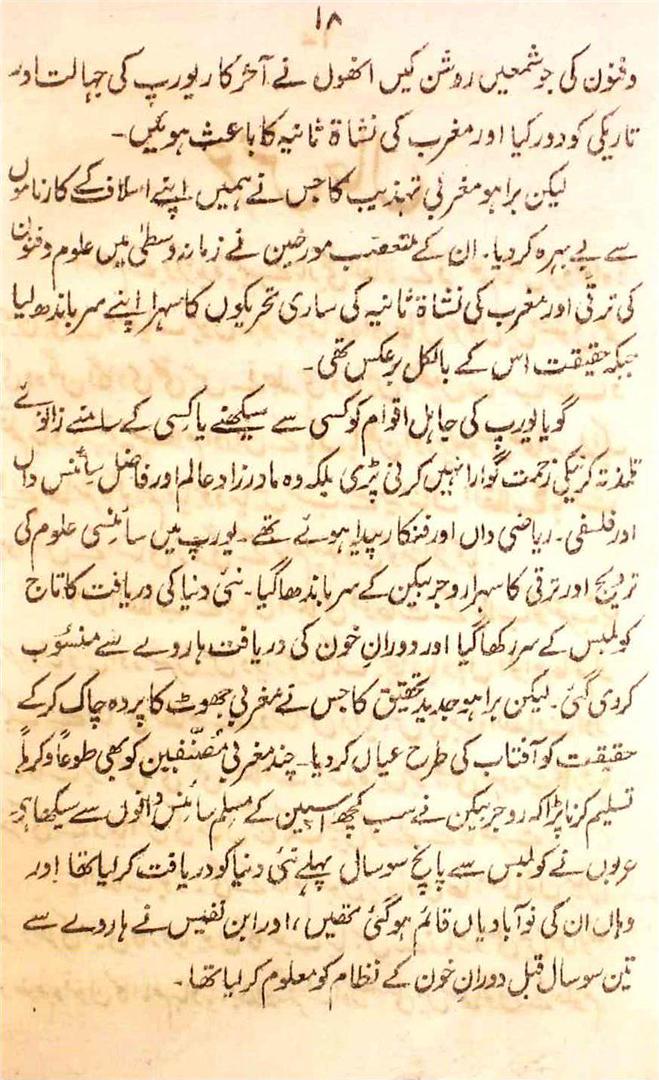 ۱۸
وفنون کی جو شمعیں روشن کیں انھوں نے آخر کار یورپ کی جہالت اور
تاریکی کو دور کیا اور مغرب کی نشاۃ ثانیہ کا باعث ہوئیں۔
لیکن برا ہو مغربی تہذیب کا جس نے ہمیں اپنے اسلاف کے کارناموں
سے بے بہرہ کر دیا۔ ان کے متعصب مورخین نے زمانہ وسطیٰ میں علوم وفنون
کی ترقی اور مغرب کی نشاۃ ثانیہ کی ساری تحریکوں کا سہرا اپنے سر باندھ لیا
جبکہ حقیقت اس کے بالکل برعکس تھی۔
گویا یورپ کی جاہل اقوام کو کسی سے سیکھنے یا کسی کے سامنے زانوئے
تلمذ تہ کرنیکی زحمت گوارا نہیں کرنی پڑی بلکہ وہ مادر زاد عالم اور فاضل سائنس داں
اور فلسفی۔ ریاضی داں اور فنکار پیدا ہوئے تھے۔ یورپ میں سائنسی علوم کی
ترویج اور ترقی کا سہرا روجر بیکن کے سر باندھا گیا۔ نئی دنیا کی دریافت کا تاج
کولمبس کے سر رکھا گیا اور دورانِ خون کی دریافت ہاروے سے منسُوب
کر دی گئی۔ لیکن برا ہو جدید تحقیق کا جس نے مغربی جھوٹ کا پردہ چاک کر کے
حقیقت کو آفتاب کی طرح عیاں کر دیا۔ چند مغربی مُصنّفین کو بھی طوعاً و کرہاً
تسلیم کرنا پڑا کہ روجر بیکن نے سب کچھ اسپین کے مسلم سائنس دانوں سے سیکھا ہو
عربوں نے کولمبس سے پانچ سو سال پہلے نئی دنیا کو دریافت کر لیا تھا اور
وہاں ان کی نو آبادیاں قائم ہو گئی تھیں، اور ابن نفیس نے ہاروے سے
تین سو سال قبل دورانِ خون کے نظام کو معلوم کر لیا تھا۔